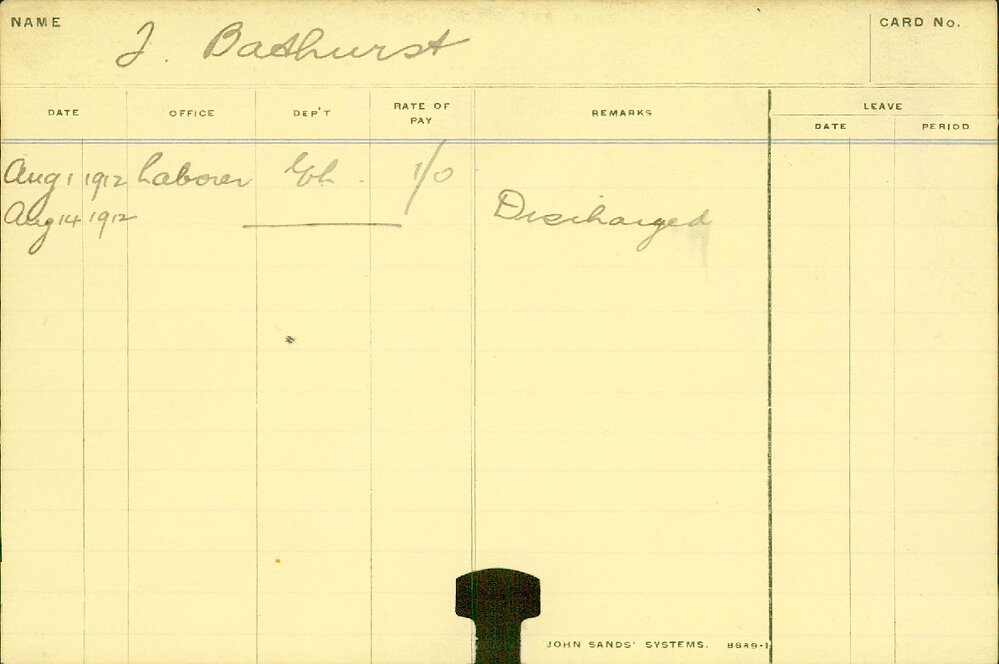 NAME J. Bathurst CARD No.
DATE OFFICE DEP'T RATE OF PAY REMARKS LEAVE
DATE PERIOD
Aug 1 1912 Laborer 1/0
Aug 14 1912 Discharged
JOHN SANDS' SYSTEMS.